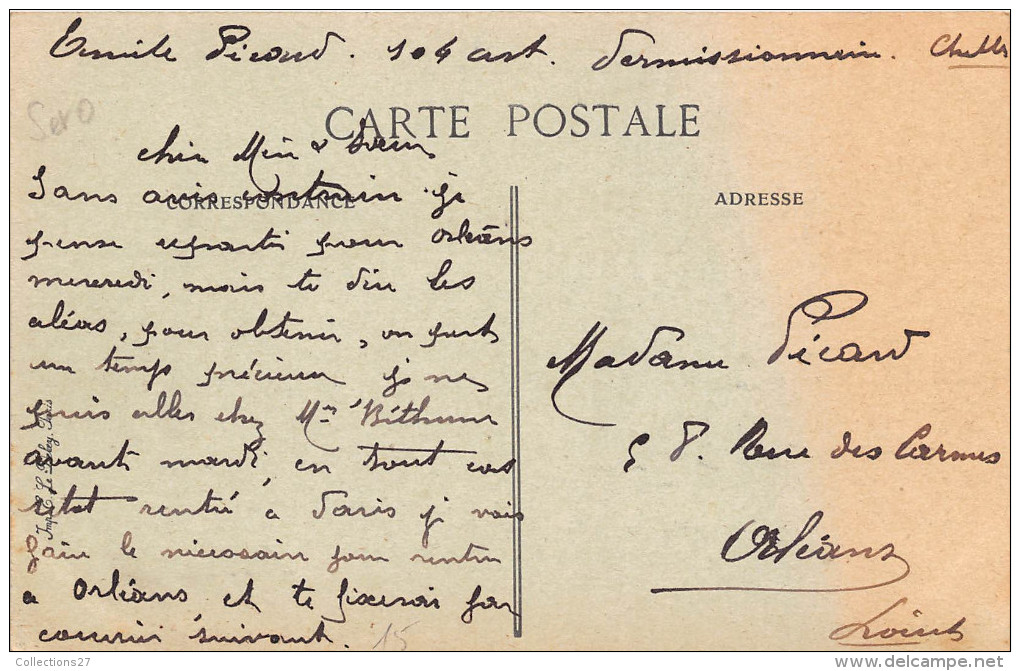 Emile Picard. 104 art. Permissionnaire. Chelles
CARTE POSTALE
CORRESPONDANCE
cher Mimi & Soeur
Sans avis contraire je
pense repartir pour Orléans
mercredi, mais te dire les
aléas, pour obtenir, on perd
un temps précieux je ne
puis aller chez Mme Béthune
avant mardi, en tout cas
sitôt rentré à Paris je vais
faire le nécessaire pour rentrer
à Orléans et te fixerai par
courrier suivant.
15
Imp. E. Le Deley, Paris
ADRESSE
Madame Picard
58. Rue des Carmes
Orléans
Loiret
Collections27
delcampe.net